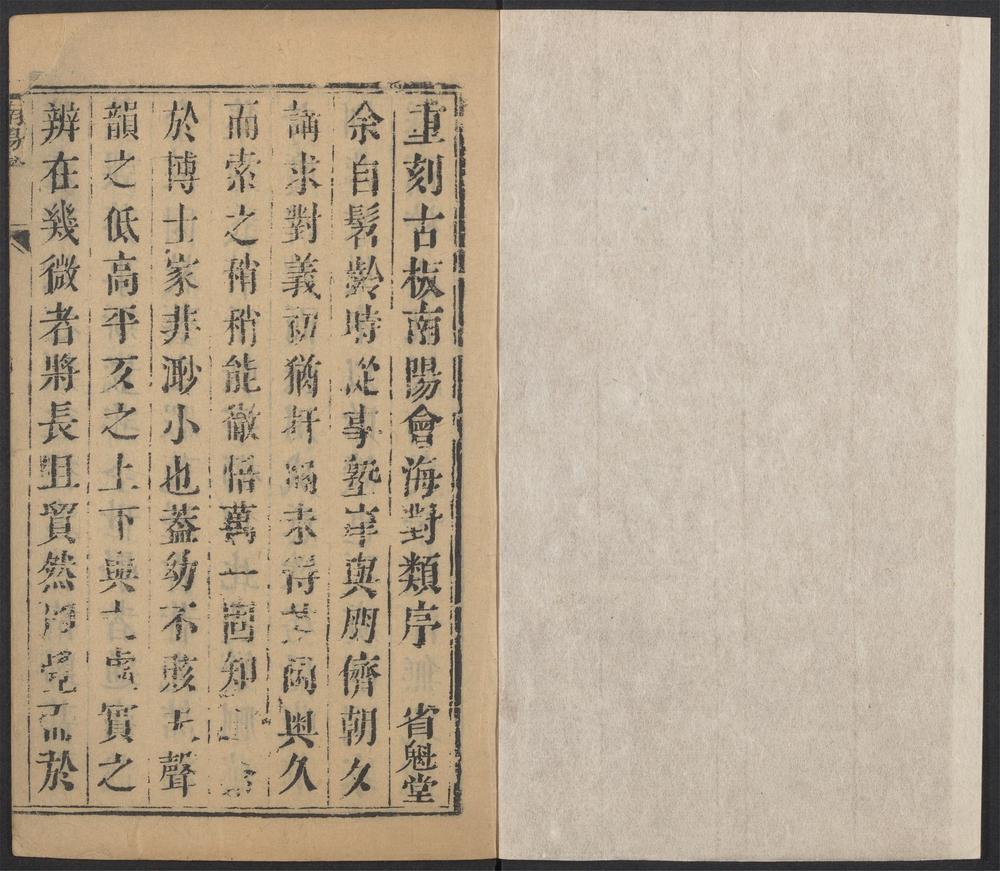 重刻古板南陽會海對類序 省魁堂
余自髫齡時從事塾庠與朋儕朝夂
講求對義初猶扞 未得其 奧久
而索之稍稍能徹悟萬一固知
於博士家非渺小也蓋幼不孩 聲
韻之低高平仄之上下與夫虛實之
辨在幾微者將長且貿然 覺 於
南陽